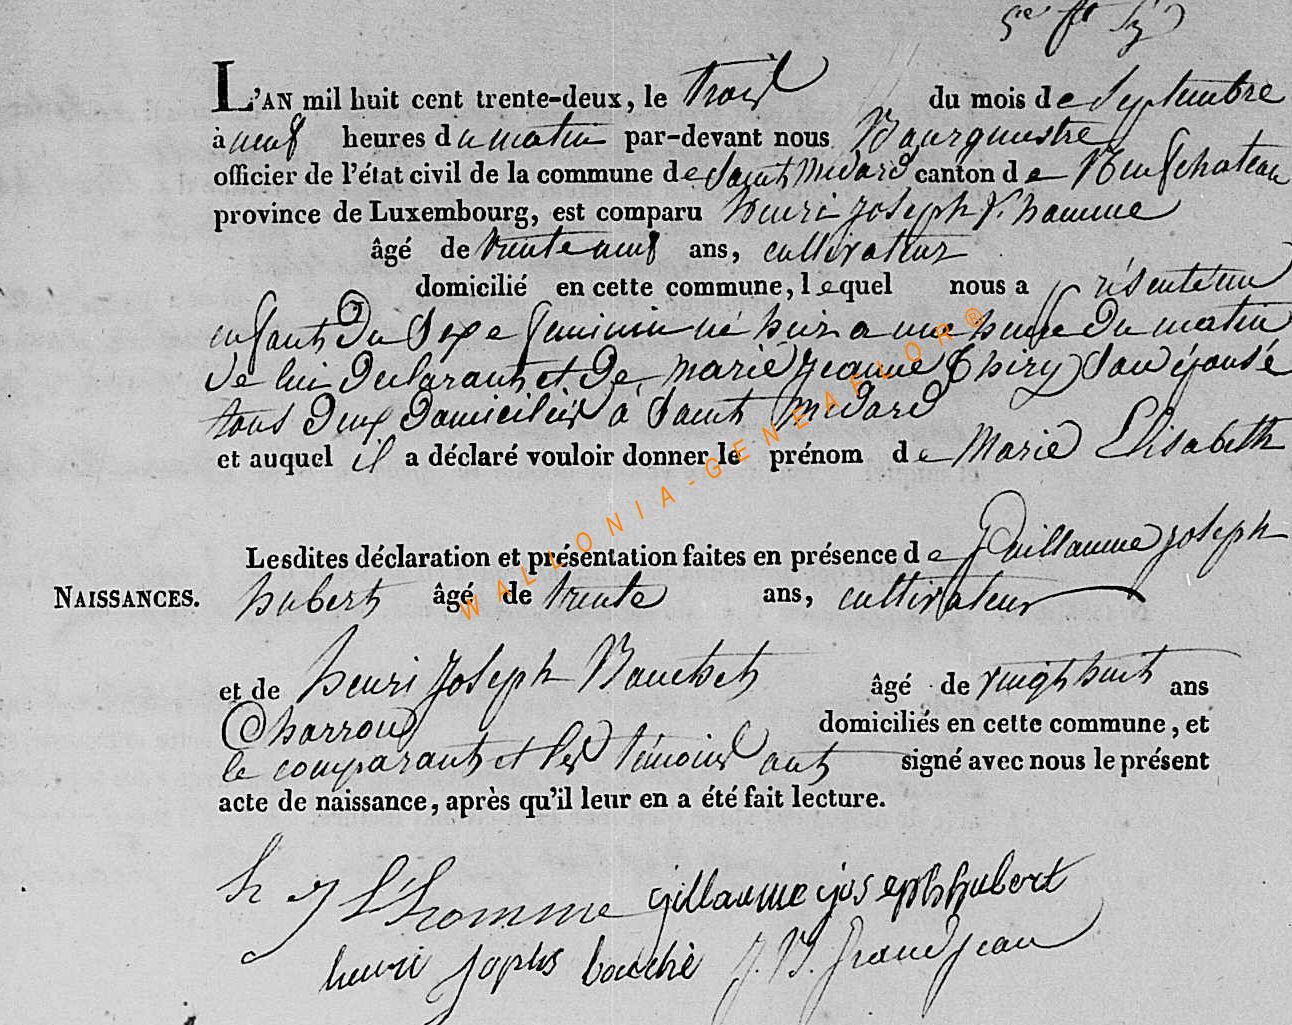 L'AN mil huit cent trente-deux, le trois du mois de Septembre
à neuf heures du matin par-devant nous Bourgmestre
officier de l'état civil de la commune de Saint Médard canton de Neufchateau
province de Luxembourg, est comparu henri joseph l'homme
âgé de trente neuf ans, cultivateur
domicilié en cette commune, lequel nous a présenté un
enfant du Sexe feminin né hier a une heure du matin
de lui declarant et de marie jeanne Thiry son épouse
tous deux domiciliés à Saint Médard
et auquel il a déclaré vouloir donner le prénom de Marie Elisabeth
Lesdites déclaration et présentation faites en présence de Guillaume joseph
NAISSANCES. hubert âgé de trente ans, cultivateur
et de henri joseph Bouchet âgé de vingt huit ans
Charron domiciliés en cette commune, et
le comparant et les témoins ont signé avec nous le présent
acte de naissance, après qu'il leur en a été fait lecture.
h j l'homme gillaume joseph hubert
henri jophs bouché J. B. Grandjean
WALLONIA-GENEAFLOR®